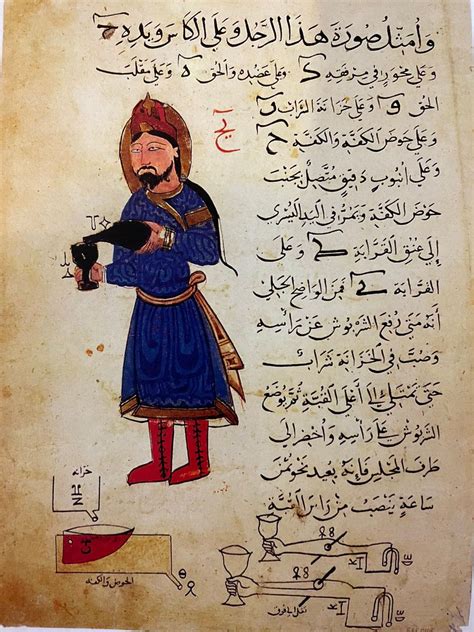 وأمثل صورة هذا الرجل وعلى الكاس ويده
وعلى محور في مرفقه وعلى عضده والحق وعلى مقلب
الحق وعلى خزانة الشراب
وعلى حوض الكفة والكفة
وعلى أنبوب دقيق متصل بجنب
حوض الكفة ويمر في اليد اليسرى
إلى عنق القرابة وعلى
القرابة فمن الواضح الجلي
أنه متى رفع الشربوش عن راسه
وصب في الخزانة شراب
حتى تمتلئ إلى أعلى ثم يوضع
الشربوش على راسه وأحضر إلى
طرف المجلس فإنه بعد نحو من ثمن
ساعة ينصب من
خزانه
الحوض والكفه